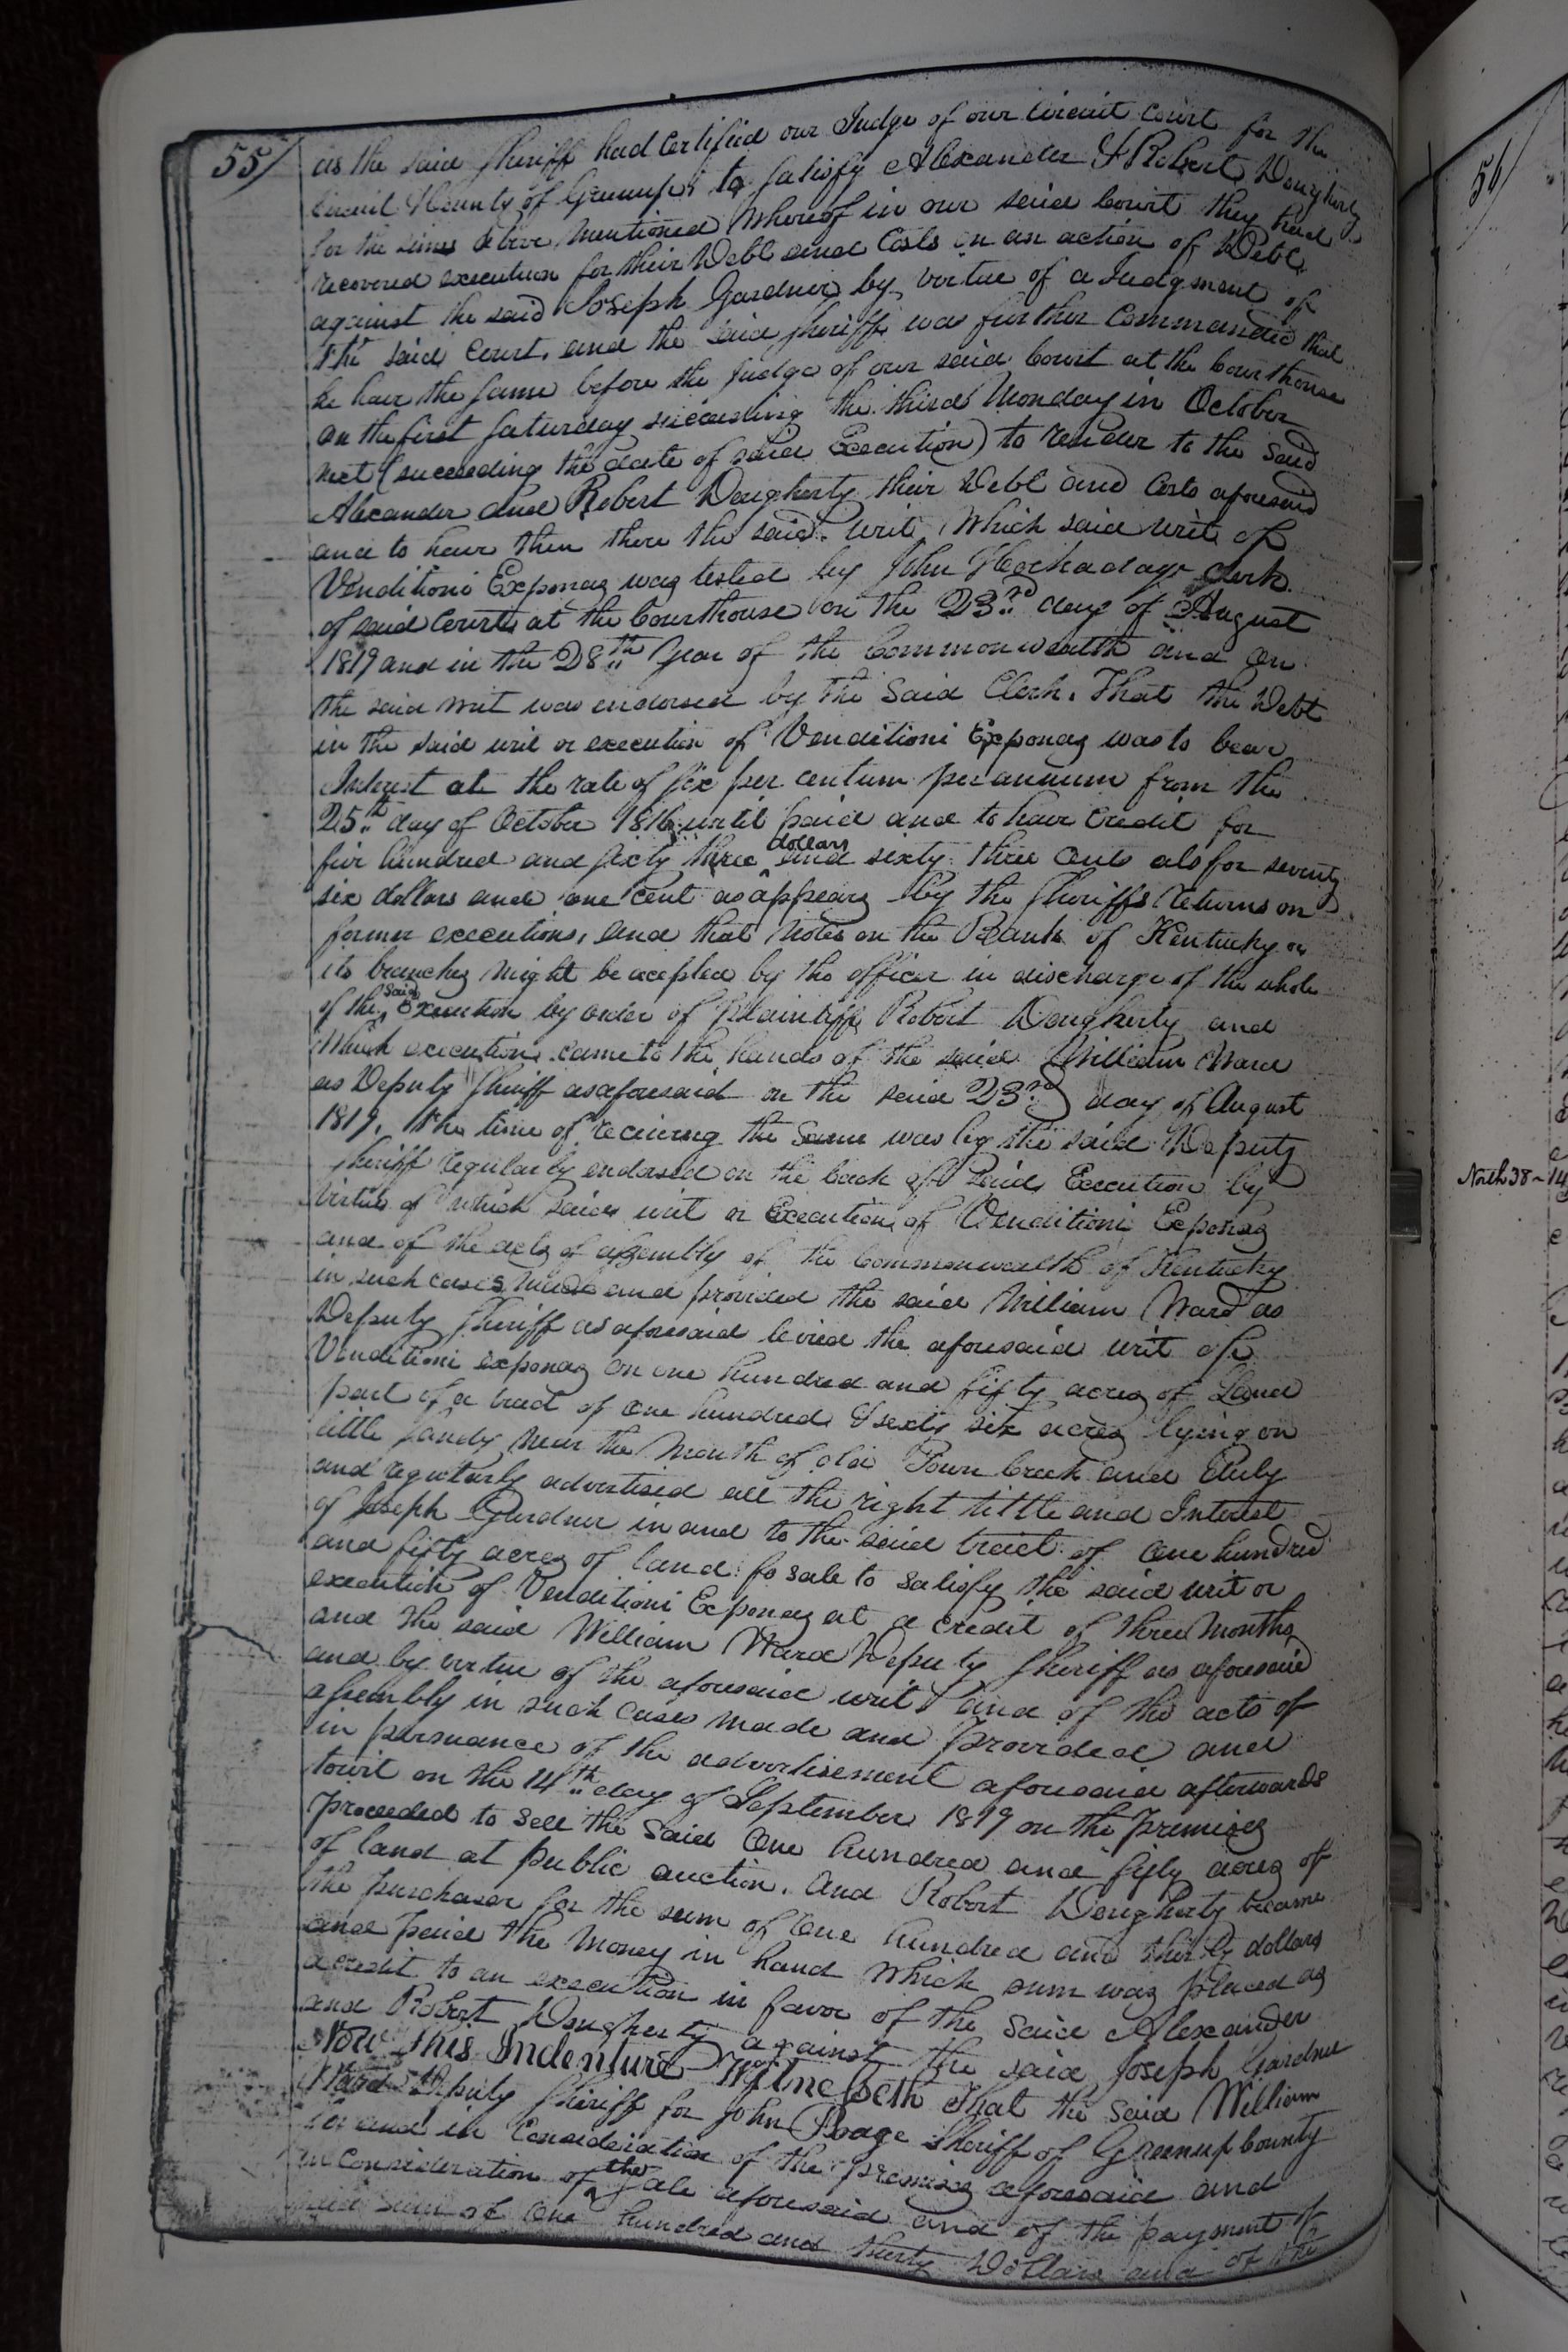 55/
as the said Sheriff had certified our Judge of our Circuit Court for the
Circuit & County of Greenup, to satisfy Alexander & Robert Dougherty
for the sums above mentioned Whereof in our said Court they had
recovered execution for their Debt and Costs in an action of Debt
against the said Joseph Gardner by virtue of a Judgment of
the said Court, and the said Sheriff was further Commanded that
he have the same before the Judge of our said Court at the Courthouse
on the first Saturday succeeding the third Monday in October
next (succeeding the date of said Execution) to render to the Said
Alexander and Robert Dougherty their Debt and Costs aforesaid
and to have then there the said writ, Which said writ of
Venditioni Exponas was tested by John Hockaday Clerk
of said Court at the Courthouse on the 23rd day of August
1819 and in the 28th Year of the Commonwealth and on
the said writ was endorsed by the Said Clerk. That the Debt
in the said writ or execution of Venditioni Exponas was to bear
Interest at the rate of six per centum per annum from the
25th day of October 1816 until paid and to have Credit for
five hundred and sixty three dollars and sixty three cents also for seventy
six dollars and one cent as appears by the Sheriffs returns on
former executions, and that Notes on the Bank of Kentucky or
its branches might be accepted by the officer in discharge of the whole
of the said Execution by order of Plaintiff Robert Dougherty and
Which execution came to the hands of the said William Ward
as Deputy Sheriff as aforesaid on the said 23rd day of August
1819, the time of receiving the Same was by the said Deputy
Sheriff regularly endorsed on the back of said Execution by
virtue of which said writ or Execution of Venditioni Exponas
and of the acts of assembly of the Commonwealth of Kentucky
in such cases made and provided the said William Ward as
Deputy Sheriff as aforesaid levied the aforesaid writ of
Venditioni exponas on one hundred and fifty acres of Land
part of a tract of one hundred & sixty six acres lying on
little Sandy near the Mouth of old Town Creek and Duly
and regularly advertised all the right tittle and Interest
of Joseph Gardner in and to the said tract of one hundred
and fifty acres of land fo sale to satisfy the said writ or
execution of Venditioni Exponas at a credit of three Months
and the said William Ward Deputy Sheriff as aforesaid
and by virtue of the aforesaid writ and of the acts of
assembly in such cases made and Provided and
in persuance of the advertisement aforesaid afterwards
towit on the 14th day of September 1819 on the Premises
proceeded to sell the said One hundred and fifty acres of
of land at public auction. And Robert Dougherty became
the purchaser for the sum of one hundred and thirty dollars
and paid the Money in hand which sum was placed as
a credit to an execution in favor of the said Alexander
and Robert Dougherty against the said Joseph Gardner
Now This Indenture Witnesseth That the Said William
Ward Deputy Sheriff for John Poage Sheriff of Greenup County
for and in Consideration of the premises aforesaid and
in Consideration of the Sale aforesaid and of the payment of
said sum of One hundred and thirty Dollars and of the
56/
North 38 - 14